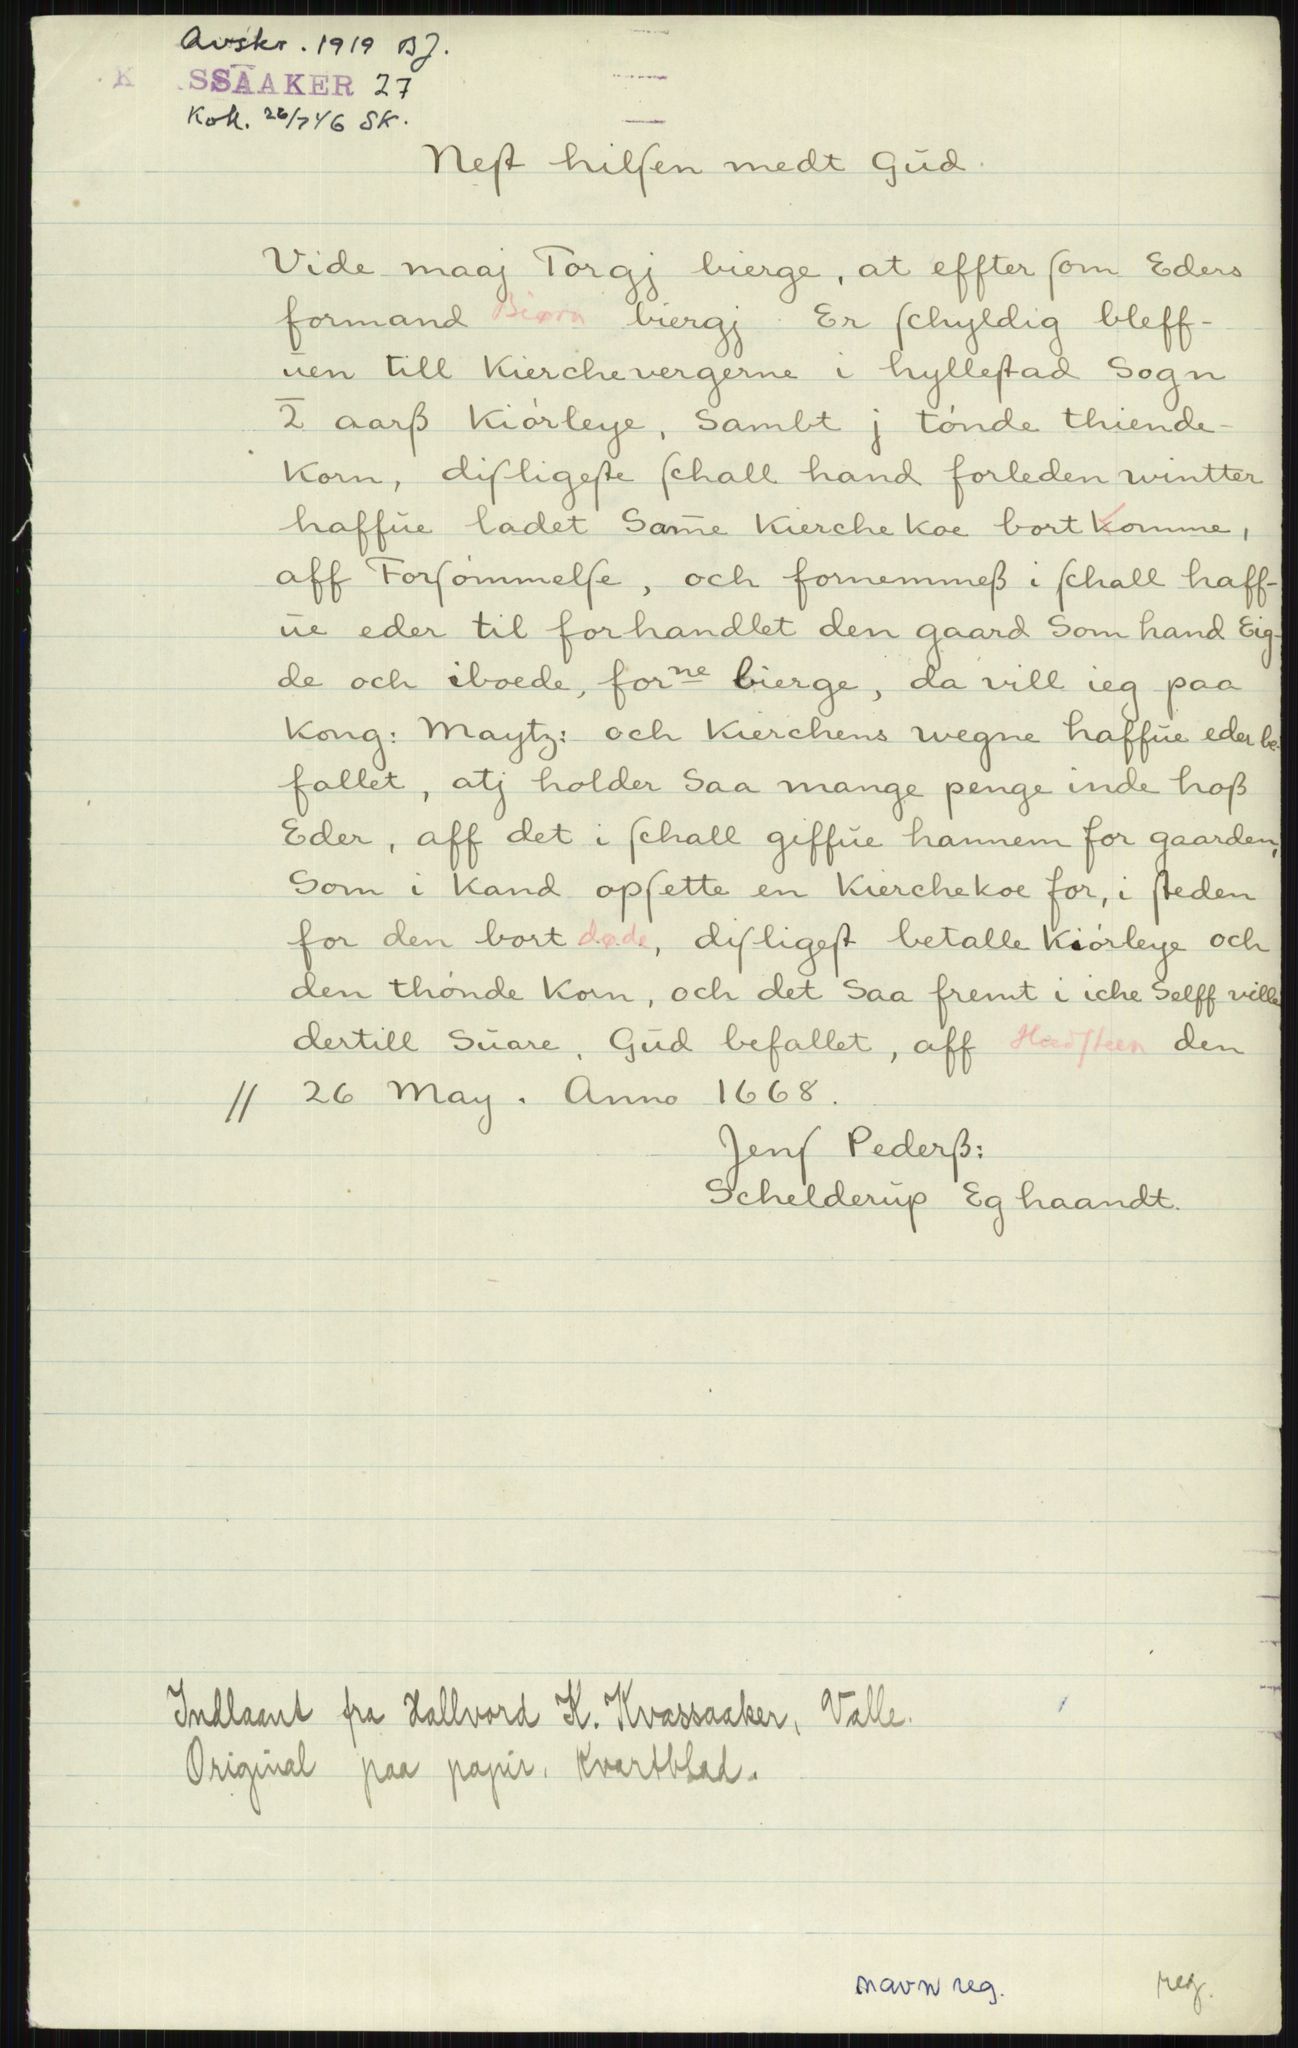 Avskr. 1919 BJ.
K SSAAKER 27
Kok. 26/7 46 SK.
Neſt hilſen medt Gūd.
Vide maaj Torgj bierge, at effter ſom Eders
formand Biørn biergj Er ſchyldig bleff-
ūen till Kierchevergerne i hylleſtad Sogn
2 aarß Kiórleye, Sambt j tónde thiende-
Korn, diſligeſte ſchall hand forleden wintter
haffūe ladet Sam̄e Kierche Koe bort Komme,
aff Forſómmelſe, och fornemmeß i ſchall haff-
ūe eder til forhandlet den gaard Som hand Eig-
de och iboede, forne bierge, da vill ieg paa
Kong: Maytz: och Kierchens wegne haffūe eder be-
fallet, atj holder Saa mange penge inde hoß
Eder, aff det i ſchall giffūe hannem for gaarden,
Som i Kand opſette en Kierchekoe for, i ſteden
for den bort døde, diſligeſt betalle Kiórleye och
den thónde Korn, och det Saa fremt i iche Selff ville
dertill Sūare, Gūd befallet, aff Hadſteen den
// 26 May. Anno 1668.
Jenſ Pederß:
Schelderūp Eg haandt.
Indlaant fra Hallvord K. Kvassaaker, Valle.
Original paa papir, Kvartblad.
navn reg. reg.